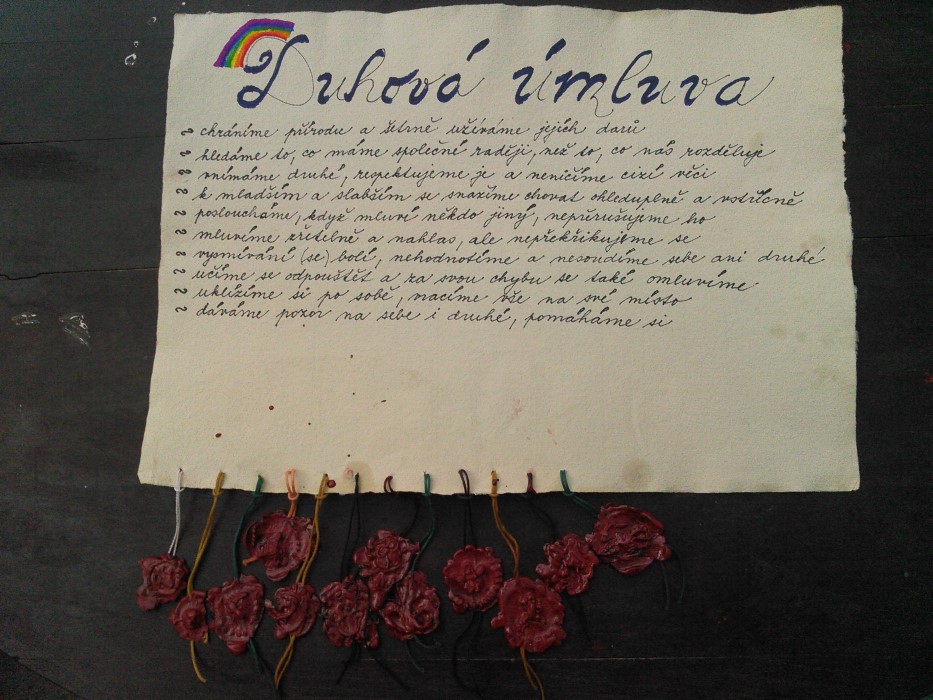 Duhová úmluva
chráníme přírodu a šetrně užíváme jejích darů
hledáme to, co máme společné raději, než to, co nás rozděluje
vnímáme druhé, respektujeme je a neničíme cizí věci
k mladším a slabším se snažíme chovat ohleduplně a vstřícně
posloucháme, když mluví někdo jiný, nepřerušujeme ho
mluvíme zřetelně a nahlas, ale nepřekřikujeme se
vysmívání (se) bolí, nehodnotíme a nesoudíme sebe ani druhé
učíme se odpouštět a za svou chybu se také omluvíme
uklízíme si po sobě, vracíme vše na své místo
dáváme pozor na sebe i druhé, pomáháme si